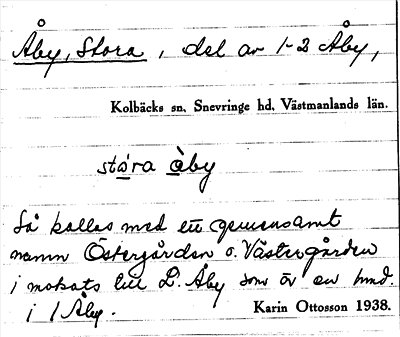 Åby, Stora, del av 1-2 Åby,
Kolbäcks sn, Snevringe hd, Västmanlands län.
stóra àby
Så kallas med ett gemensamt
namn Östergården o. Västergården
i motsats till L. Åby som är en hmd.
i 1 Åby.
Karin Ottosson 1938.